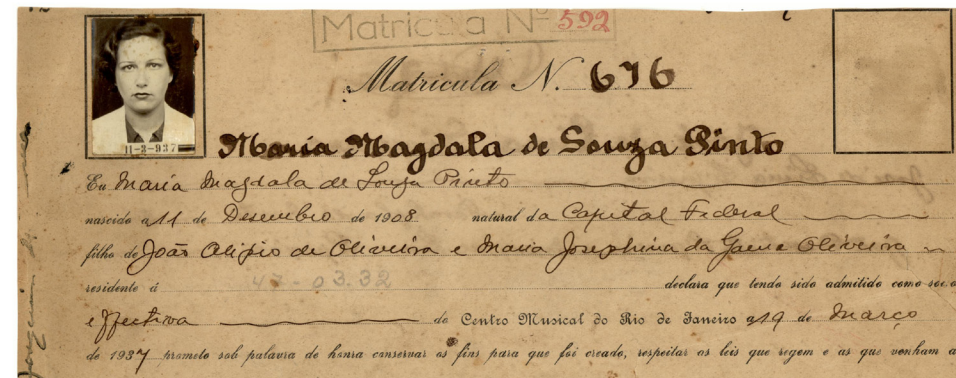 Matricula Nº 592
Matricula N. 676
11-3-937
Maria Magdala de Souza Pinto
Eu Maria Magdala de Souza Pinto
nascido a 11 de Desembro de 1908 natural da Capital Federal
filho de João Alipio de Oliveira e Maria Josephina da Gama Oliveira
47-0332
residente á declara que tendo sido admitido como socio
effectiva do Centro Musical do Rio de Janeiro a 19 de Março
de 1937 prometo sob palavra de honra conservar os fins para que foi creado, respeitar as leis que regem e as que venham a